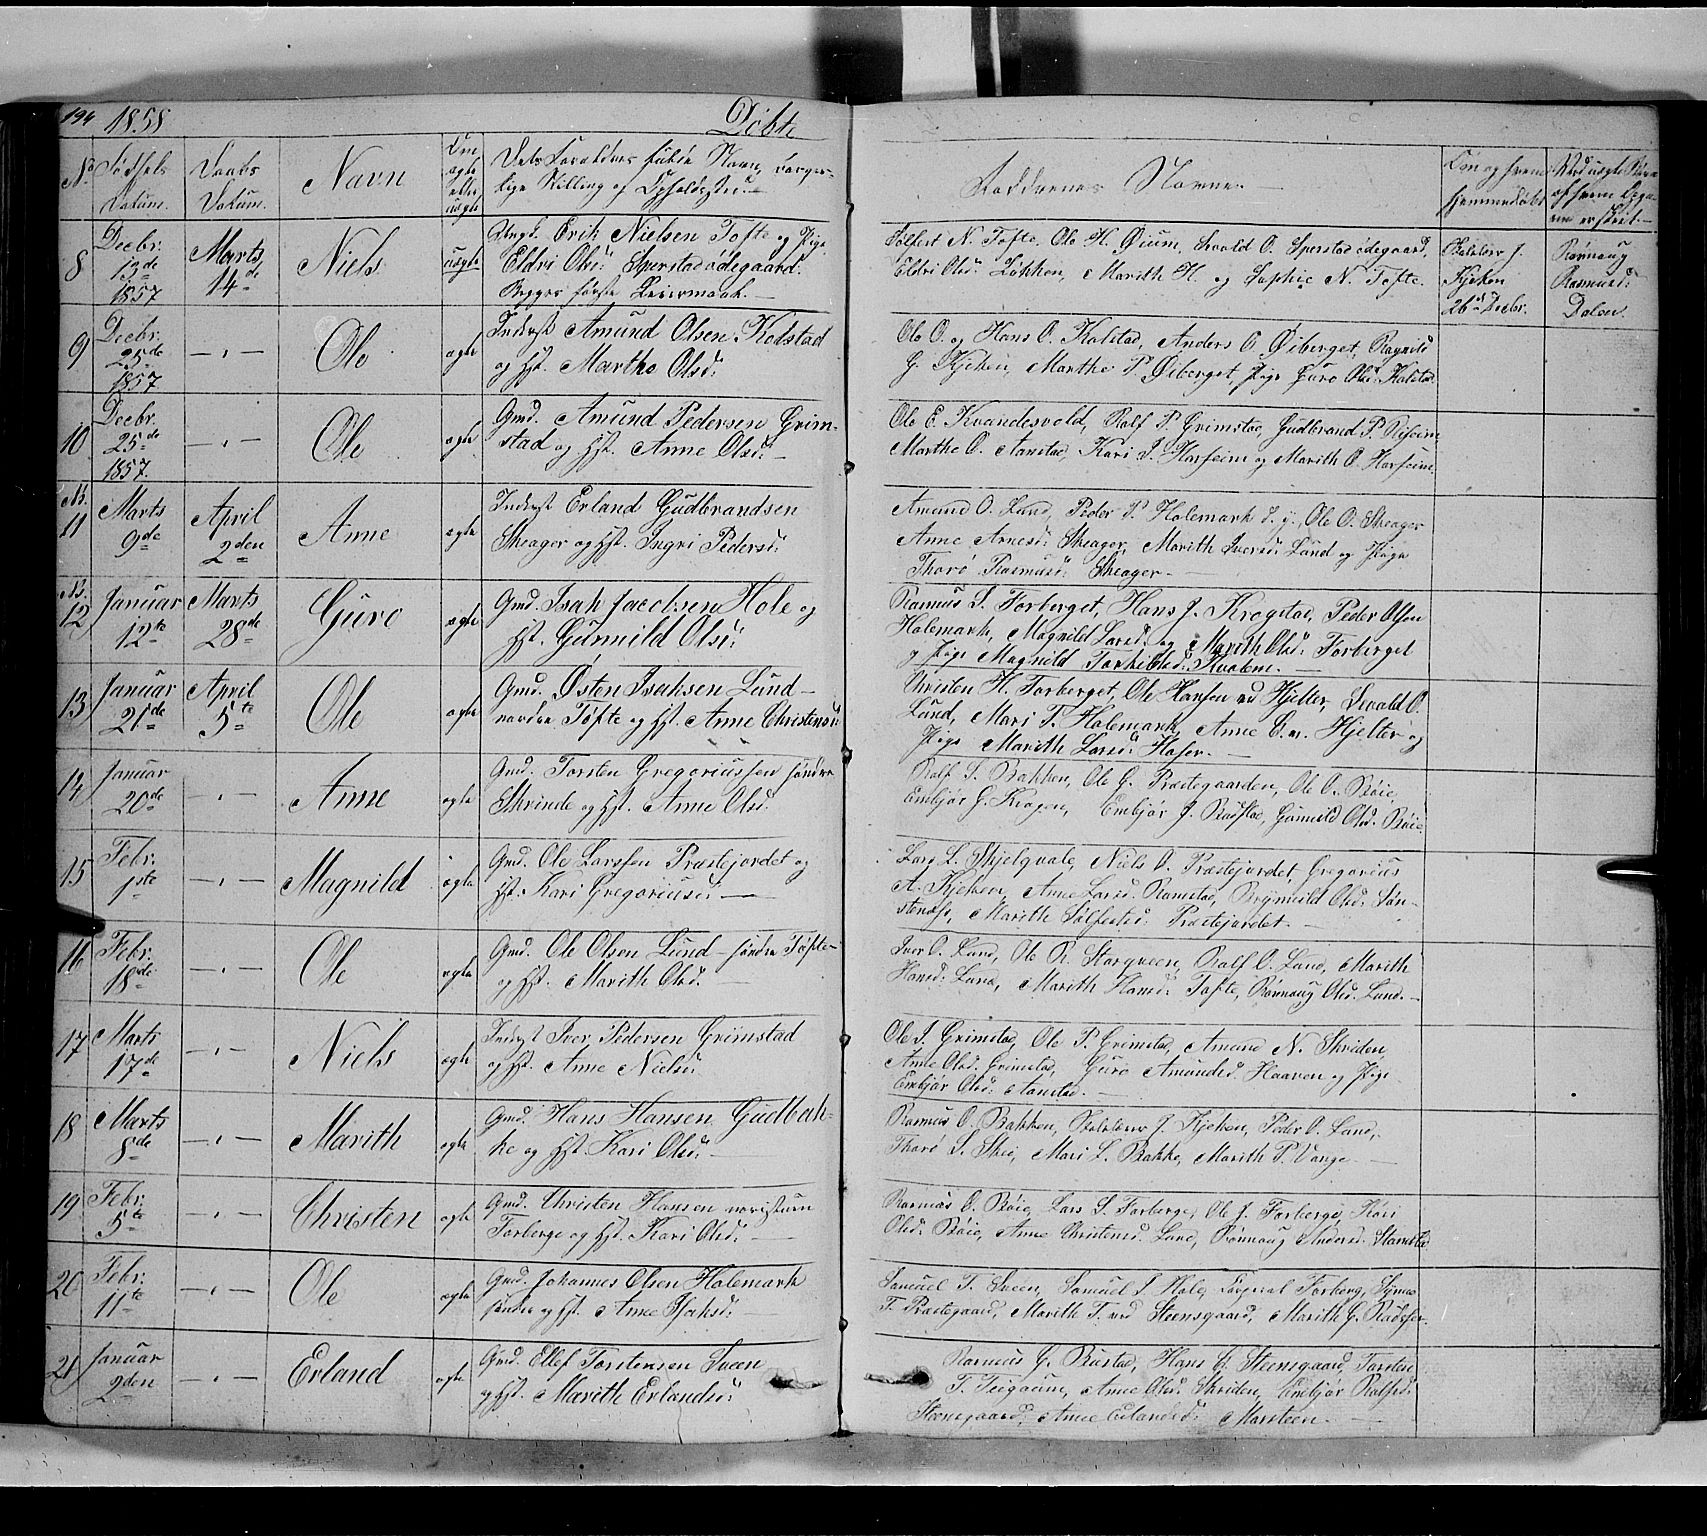 194 1858 Døbte
No Fødsels Datum. Daabs Datum. Navn Om ægte eller uægte Dets Forældres fulde Navn, borgerlige Stilling og Opholdssted.
Faddernes Navne. Om og hvem hjemmedøbt
8 Decbr. 13de 1857 Marts 14de Niels uægte
Ungk. Erik Nielsen Tofte og Pige
Eldri Olsd: Sperstadødegaard.
Begges første Leiermaal.
Sølfest N. Tofte, Ole H. Øium, Sivald O. Sperstadødegaard,
Eldri Olsd: Løkken, Marith H. og Sophie N. Tofte.
Kjeken 26de Decbr.
Rønnaug Rasmusd: Dalen.
9 Decbr. 25de 1857 —"— Ole ægte
Inderst Amund Olsen Kolstad
og Hst. Marthe Olsd:
Ole O. og Hans O. Kolstad, Anders O. Øiberget, Ragnild
G. Kjeken, Marthe P. Øiberget, Pige Guro Olsd: Kolstad.
10 Decbr. 25de 1857. —"— Ole ægte
Gmd. Amund Pedersen Grim-
stad og Hst. Anne Olsd: —
Ole E. Kvandesvold, Rolf P. Grimstad, Gudbrand P.
Marthe O. Aanstad, Kari J. Harseim og Marith O. Harseim.
11 Marts 9de April 2den Anne ægte
Inderst Erland Gudbrandsen
Skeager og Hst. Ingri Pedersd:
Amund O. Lund, Peder P. Holemark, Ole O. Skeager
Anne Arnesd: Skeager, Marith Iversd: Lund og Pige
Thorø Rasmusd: Skeager. —
12 Januar 12te Marts 28de Guro ægte
Gmd. Isak Jacobsen Hole og
Hst. Gunnild Olsd:
Rasmus S. Forberget, Hans J. Krogstad, Peder Olsen
Holemark, Magnild Larsd: og Marith Olsd: Forberget
og Pige Magnild Torkildsd: Kvalem. —
13 Januar 21de April 5te Ole ægte
Gmd. Østen Isaksen Lund—
nordre Tofte og Hst. Anne Christensd:
Christen H. Forberget, Ole Hansen ved Hjelter, Sivald O.
Lund, Mari T. Holemark, Anne E. Hjelter og
Pige Marith Larsd: —
14 Januar 20de —"— Anne ægte
Gmd. Torsten Gregoriussen søndre
Skrinde og Hst. Anne Olsd:
Rolf S. Bakken, Ole G. Præstegaarden, Ole O. Bøie,
Embjør G. Kragen, Embjør J. Gunnild Olsd: Bøie
15 Febr. 1ste —"— Magnild ægte
Gmd. Ole Larssen Præstejordet og
Hst. Kari Gregoriusd: —
Lars L. Skjelqvale, Niels O. Præstejordet, Gregorius
A. Kjeken, Anne Larsd: Ramstad, Brynnild Olsd: Søn-
stenæs, Marith Sølfestsd: Præstejordet. —
16 Febr. 18de —"— Ole ægte
Gmd. Ole Olsen Lund—søndre Tofte—
og Hst. Marith Olsd. —
Iver O. Lund, Ole R. Storqveen, Rolf O. Lund, Marith
Hansd: Lund, Marith Hansd: Tofte, Rønnaug Olsd. Lund. —
17 Marts 17de —"— Niels ægte
Inderst Iver Pedersen Grimstad
og Hst. Anne Nielsd:
Ole I. Grimstad, Ole P. Grimstad, Amund N. Skriden,
Anne Olsd. Grimstad, Guro Amundsd. Haaven og Pige
Embjør Olsd: Aanstad. —
18 Marts 8de —"— Marith ægte
Gmd. Hans Hansen Gudbak-
ke og Hst. Kari Olsd: —
Rasmus O. Bakken, J. Kjeken, Peder O. Lund,
Thorø S. Skei, Mari L. Bakke, Marith P. Vange —
19 Febr. 5te —"— Christen ægte
Gmd. Christen Hansen
Forberge og Hst. Kari Olsd: —
Rasmus O. Bøie, Lars S. Forberge, Ole J. Forberge, Kari
Olsd: Bøie, Anne Christensd: Lund, Rønnaug Andersd.
20 Febr. 11te —"— Ole ægte
Gmd. Johannes Olsen Holemark
søndre og Hst. Anne Isaksd: —
Samuel T. Sveen, Samuel I. Hole, Forberg, Synnev
T. Præstegaard, Marith T. ved Steensgaard, Marith G.
21 Januar 2den —"— Erland ægte
Gmd. Ellef Torstensen Sveen
og Hst. Marith Erlandsd:
Rasmus G. Bustad, Hans G. Steensgaard, Torsten
T. Teigaum, Anne Olsd: Skriden, Embjør Rolfsd:
Steensgaard, Anne Erlandsd: Marsteen. —